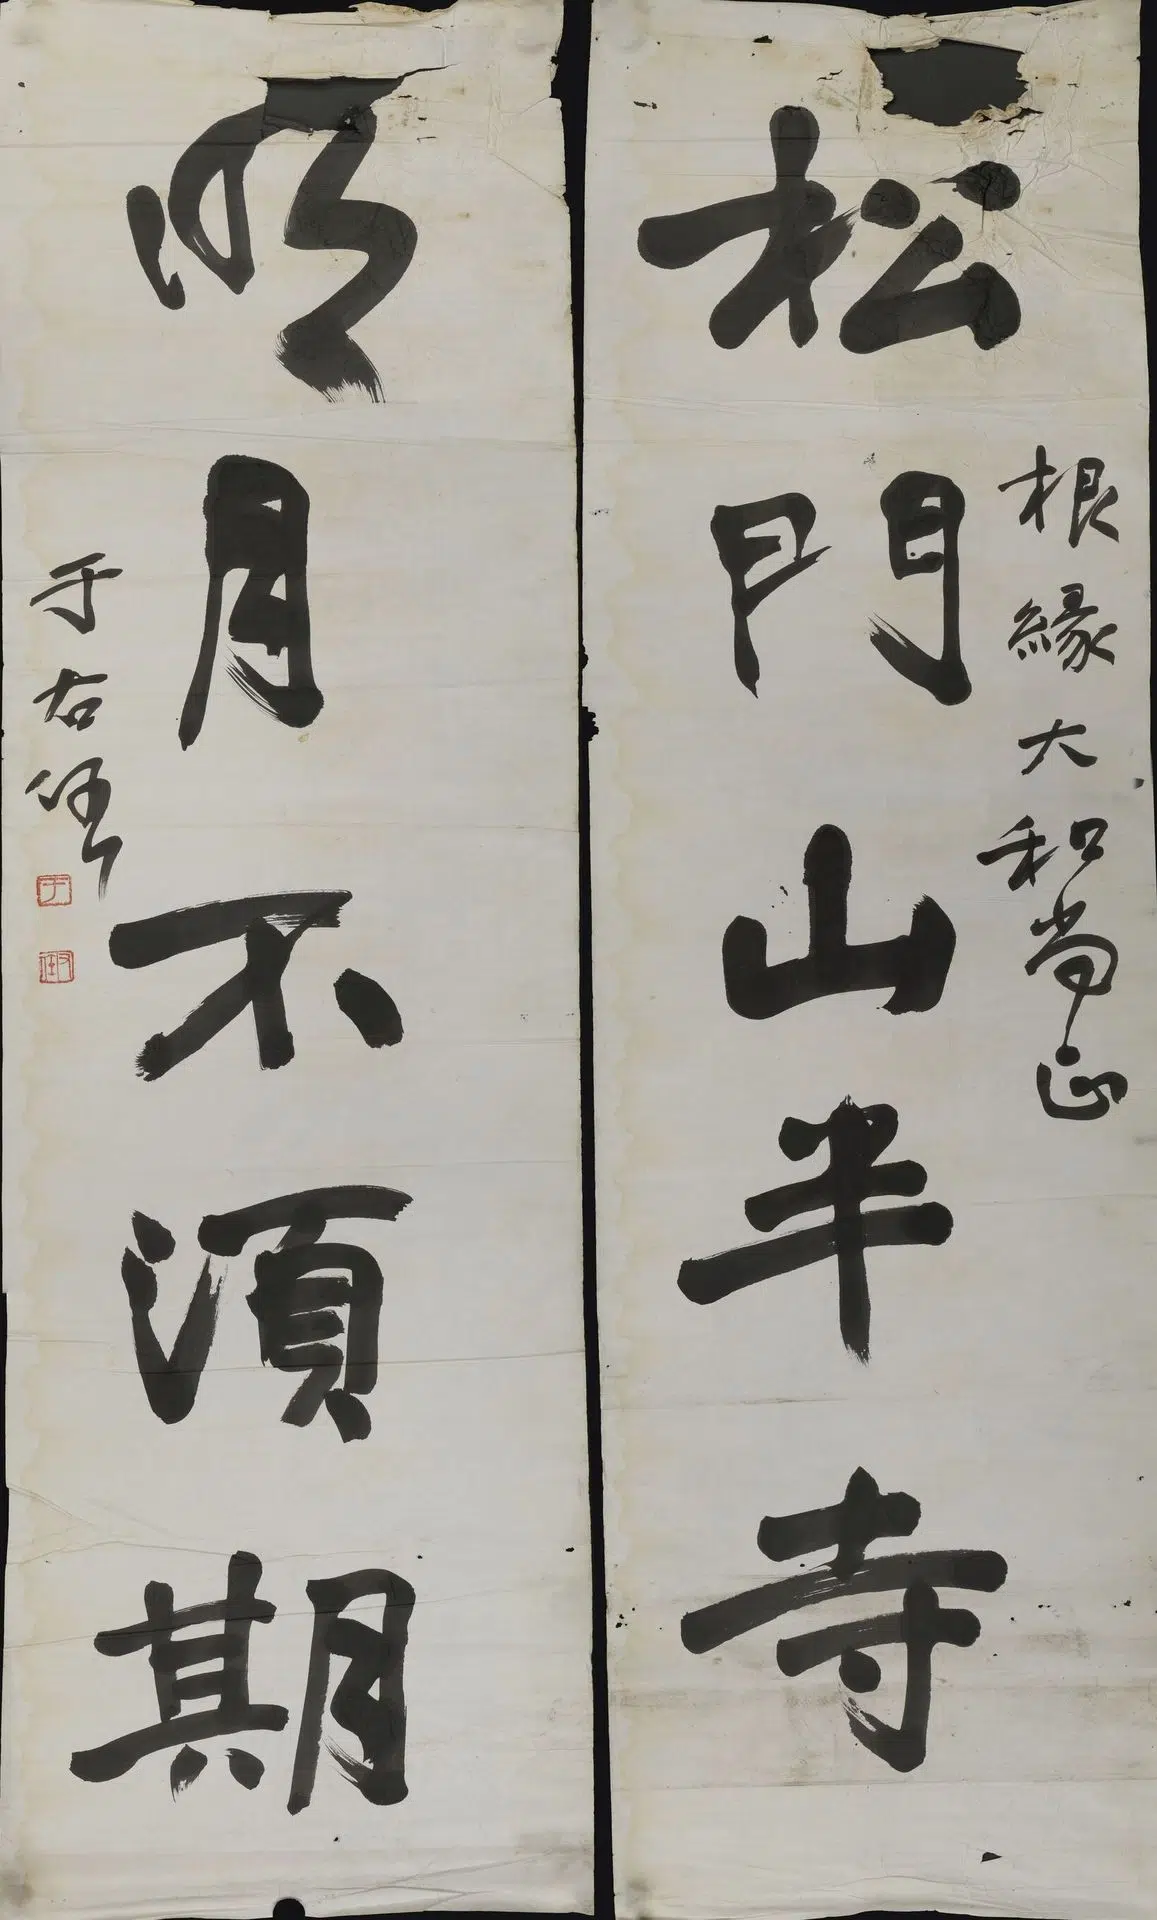 根緣大和尚正
松門山半寺
明月不須期
于右任
于
右任